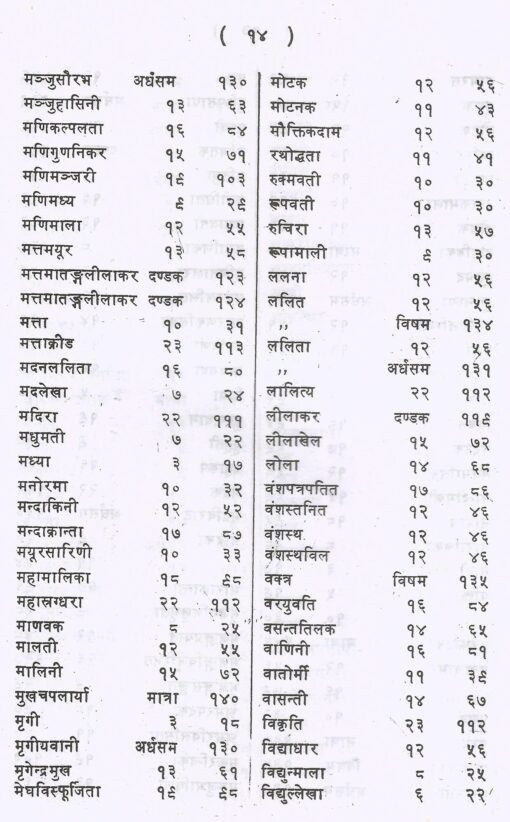 ( १४ )
मञ्जुसौरभ अर्धसम १३०
मञ्जुहासिनी १३ ६३
मणिकल्पलता १६ ८४
मणिगुणनिकर १५ ७१
मणिमञ्जरी १९ १०३
मणिमध्य ९ २९
मणिमाला १२ ५५
मत्तमयूर १३ ५८
मत्तमातङ्गलीलाकर दण्डक १२३
मत्तमातङ्गलीलाकर दण्डक १२४
मत्ता १० ३१
मत्ताक्रीड २३ ११३
मदनललिता १६ ८०
मदलेखा ७ २४
मदिरा २२ १११
मधुमती ७ २२
मध्या ३ १७
मनोरमा १० ३२
मन्दाकिनी १२ ५२
मन्दाक्रान्ता १७ ८७
मयूरसारिणी १० ३३
महामालिका १८ ९८
महास्रग्धरा २२ ११२
माणवक ८ २५
मालती १२ ५५
मालिनी १५ ७२
मुखचपलार्या मात्रा १४०
मृगी ३ १८
मृगीयवानी अर्धसम १३०
मृगेन्द्रमुख १३ ६१
मेघविस्फूर्जिता १९ ९८
मोटक १२ ५६
मोटनक ११ ४३
मौक्तिकदाम १२ ५६
रथोद्धता ११ ४१
रुक्मवती १० ३०
रूपवती १० ३०
रुचिरा १३ ५७
रूपामाली ९ ३०
ललना १२ ५६
ललित १२ ५६
,, विषम १३४
ललिता १२ ५६
,, अर्धसम १३१
लालित्य २२ ११२
लीलाकर दण्डक ११९
लीलाखेल १५ ७२
लोला १४ ६८
वंशपत्रपतित १७ ८६
वंशस्तनित १२ ४६
वंशस्थ १२ ४६
वंशस्थविल १२ ४६
वक्त्र विषम १३५
वरयुवति १६ ८४
वसन्ततिलक १४ ६५
वाणिनी १६ ८१
वातोर्मी ११ ३९
वासन्ती १४ ६७
विकृति २३ ११२
विद्याधार १२ ५६
विद्युन्माला ८ २५
विद्युल्लेखा ६ २२